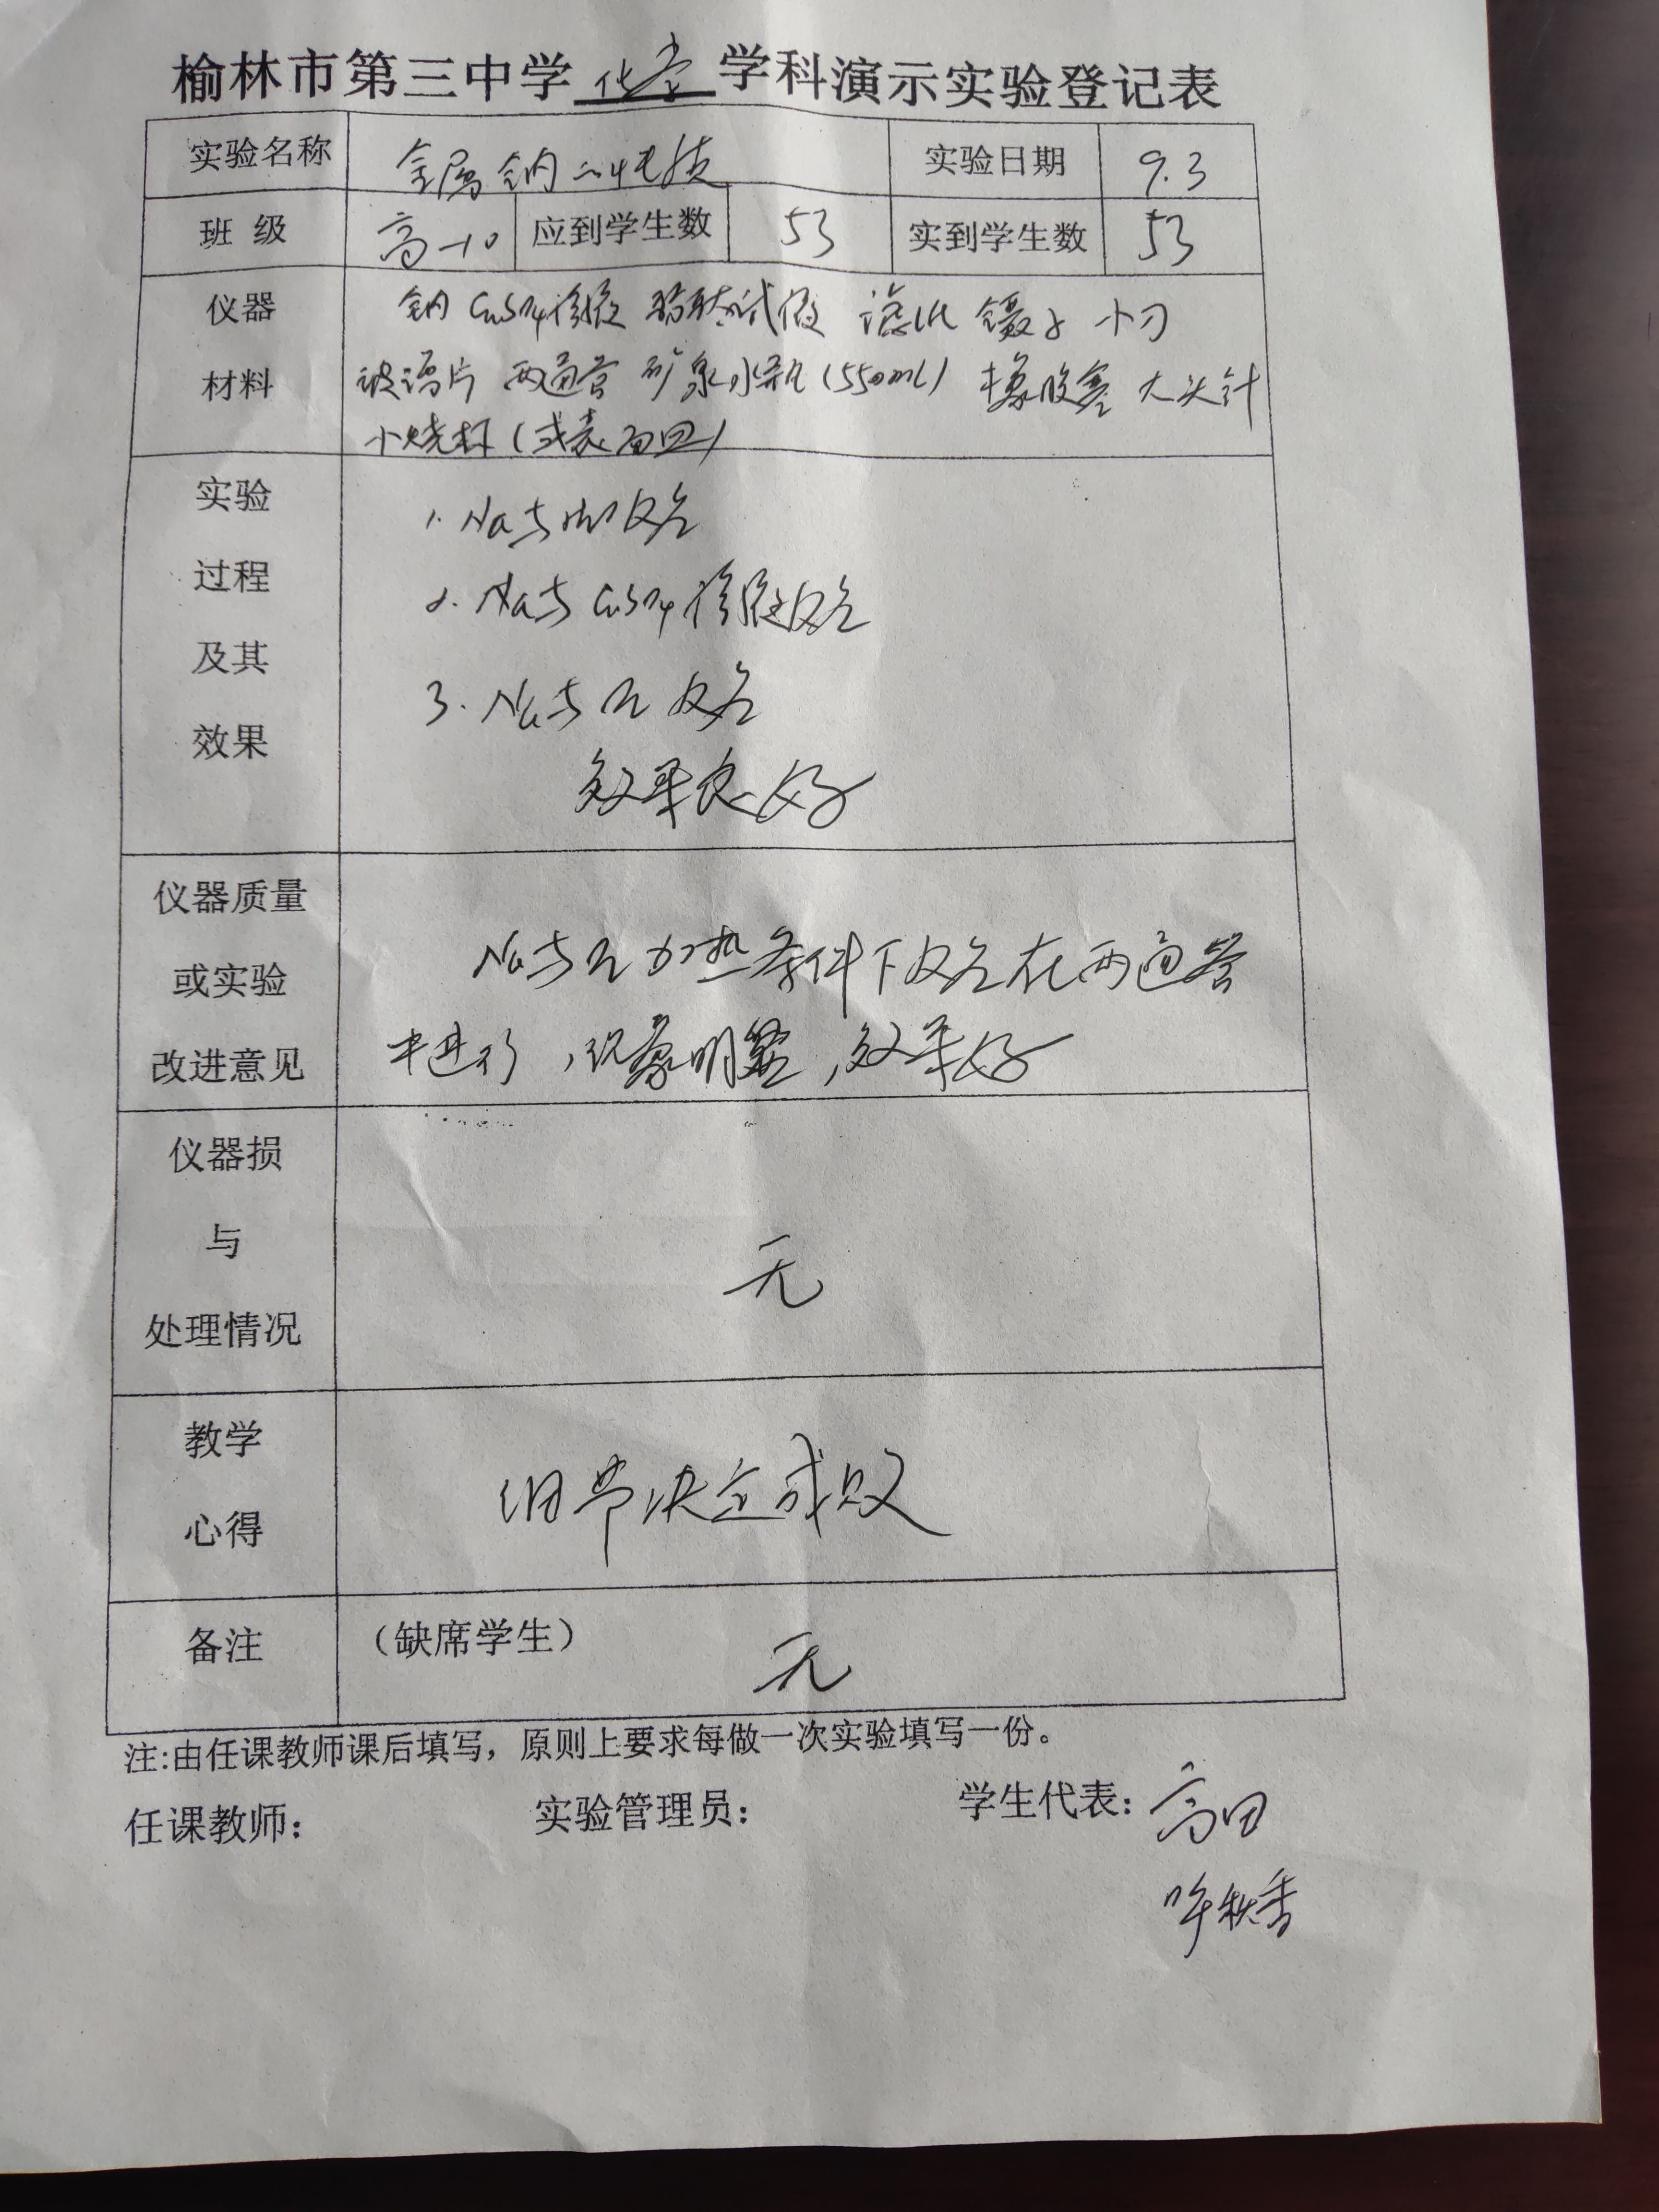 榆林市第三中学化学学科演示实验登记表
实验名称 金属钠的性质 实验日期 9.3
班 级 高一10 应到学生数 53 实到学生数 53
仪器 钠 CuSO4溶液 酚酞试液 滤纸 镊子 小刀
材料 玻璃片 两通管 矿泉水瓶(550mL) 橡胶塞 大头针
小烧杯(或表面皿)
实验 1. Na与H2O反应
过程 2. Na与CuSO4溶液反应
及其 3. Na与O2反应
效果 效果良好
仪器质量
或实验 Na与O2加热条件下反应在两通管
改进意见 中进行,现象明显,效果好
仪器损
与 无
处理情况
教学 细节决定成败
心得
备注 (缺席学生) 无
注:由任课教师课后填写,原则上要求每做一次实验填写一份。
任课教师: 实验管理员: 学生代表: 高田
秋香